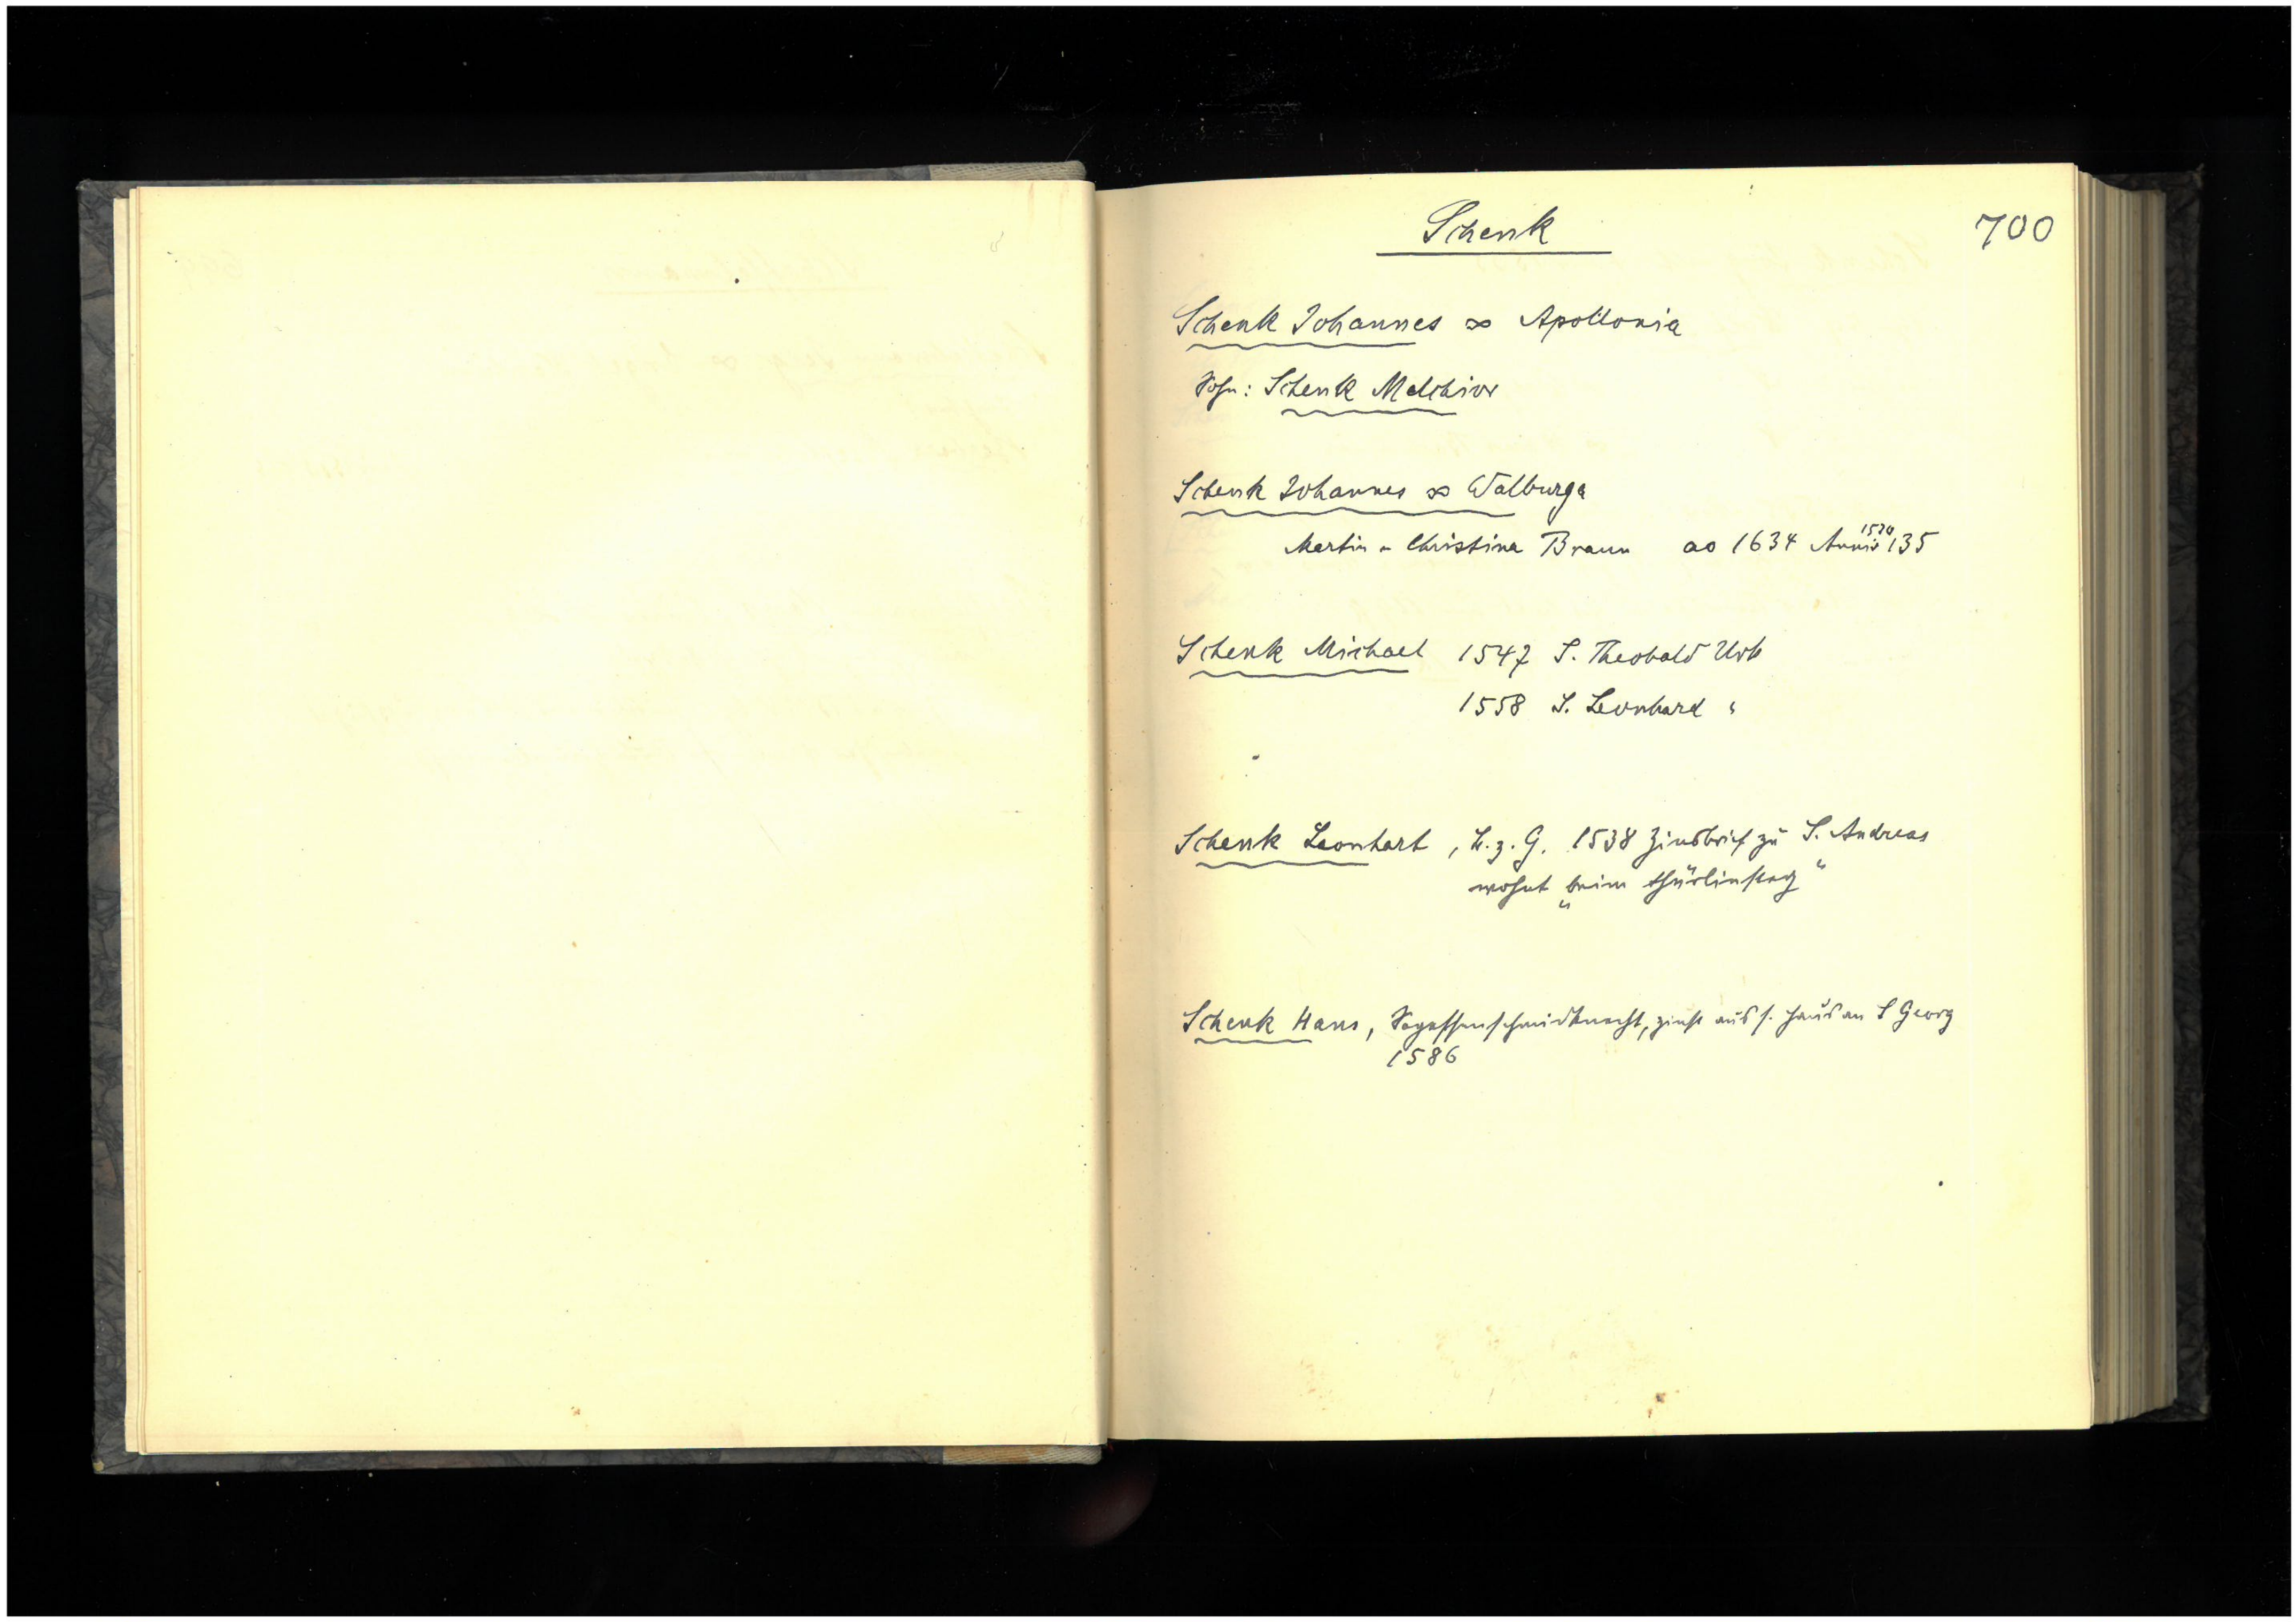 Schenk
700
Schenk Johannes ∞ Apollonia
Sohn: Schenk Melchior
Schenk Johannes ∞ Walburga
Martin u Christina Braun ao 1634 Anniv 1520 135
Schenk Michael 1547 S. Theobald Urk
1558 S. Leonhard "
Schenk Leonhart, B. z. G. 1538 Zinsbrief zu S. Andreas
wohnt „beim thürlinsteg“
Schenk Hans, Segessenschmidknecht, zinst aus s. Haus an S Georg
1586